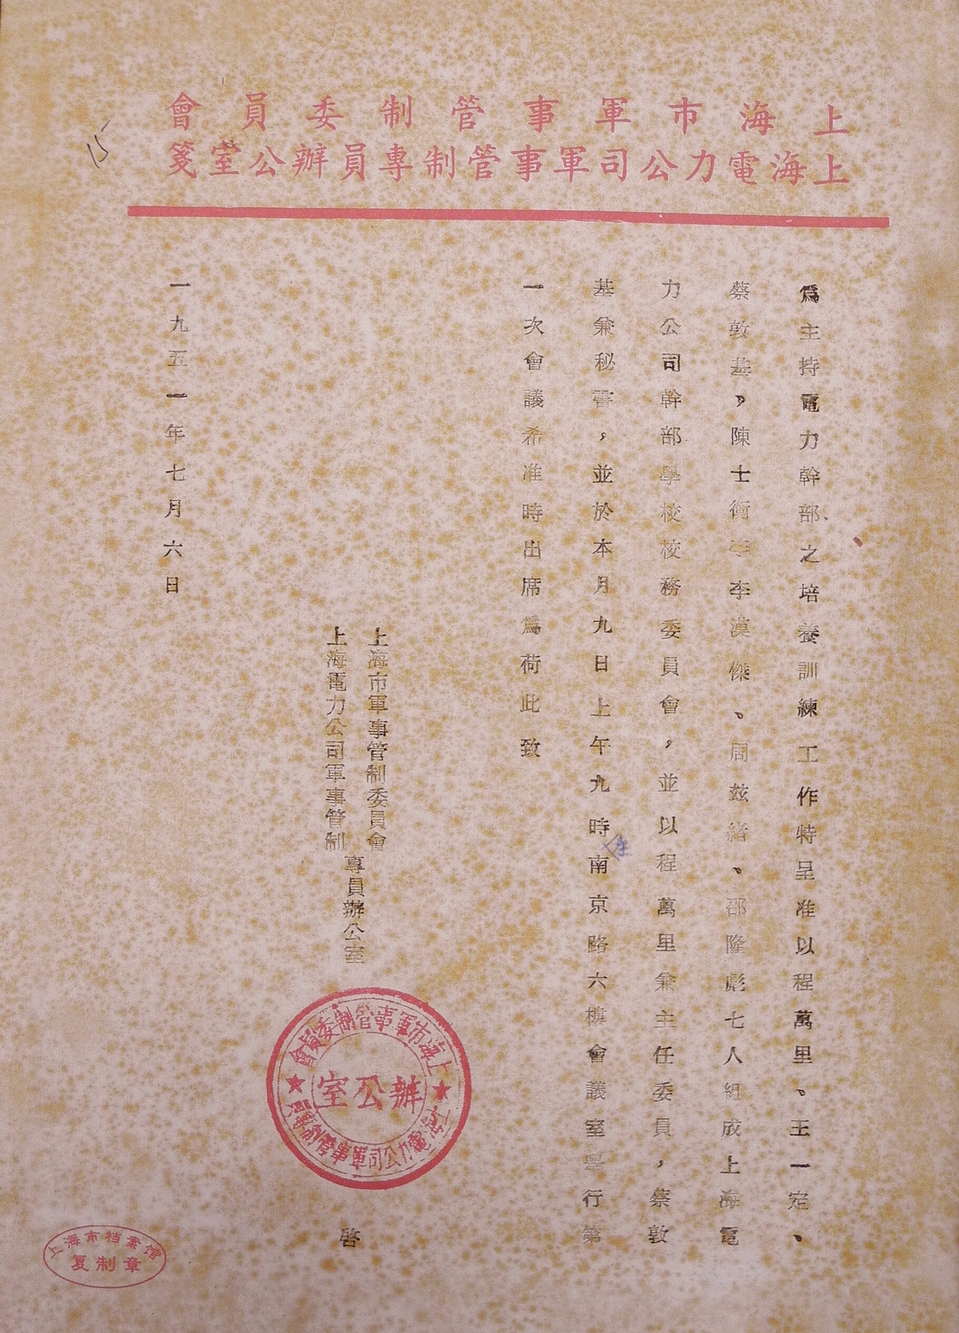 上海市軍事管制委員會
上海電力公司軍事管制專員辦公室箋
15
爲主持電力幹部之培養訓練工作特呈准以程萬里、王一定、
蔡敦基，陳士衡 李漢傑、周玆緒、邵隆彪七人組成上海電
力公司幹部學校校務委員會，並以程萬里兼主任委員，蔡敦
基兼秘書，並於本月九日上午九時南京路六樓會議室舉行第
一次會議希准時出席爲荷此致
在
上海市軍事管制委員會
上海電力公司軍事管制
專員辦公室
啓
一九五一年七月六日
上海市軍事管制委員會
辦公室
上海電力公司軍事管制專員
上海市档案馆
复制章